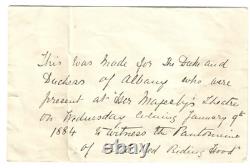 This was made for the Duke and
Duchess of Albany who were
present at "Her Majesty's Theatre
on Wednesday Evening January 9th
1884 to witness the Pantomime
of Red Riding Hood"